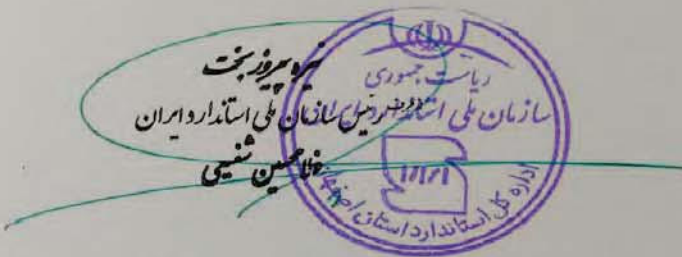 نیره پیروزبخت
رئیس سازمان ملی استاندارد ایران
غلامحسین شفیعی
ریاست جمهوری
سازمان ملی استاندارد ایران
اداره کل استاندارد استان اصفهان